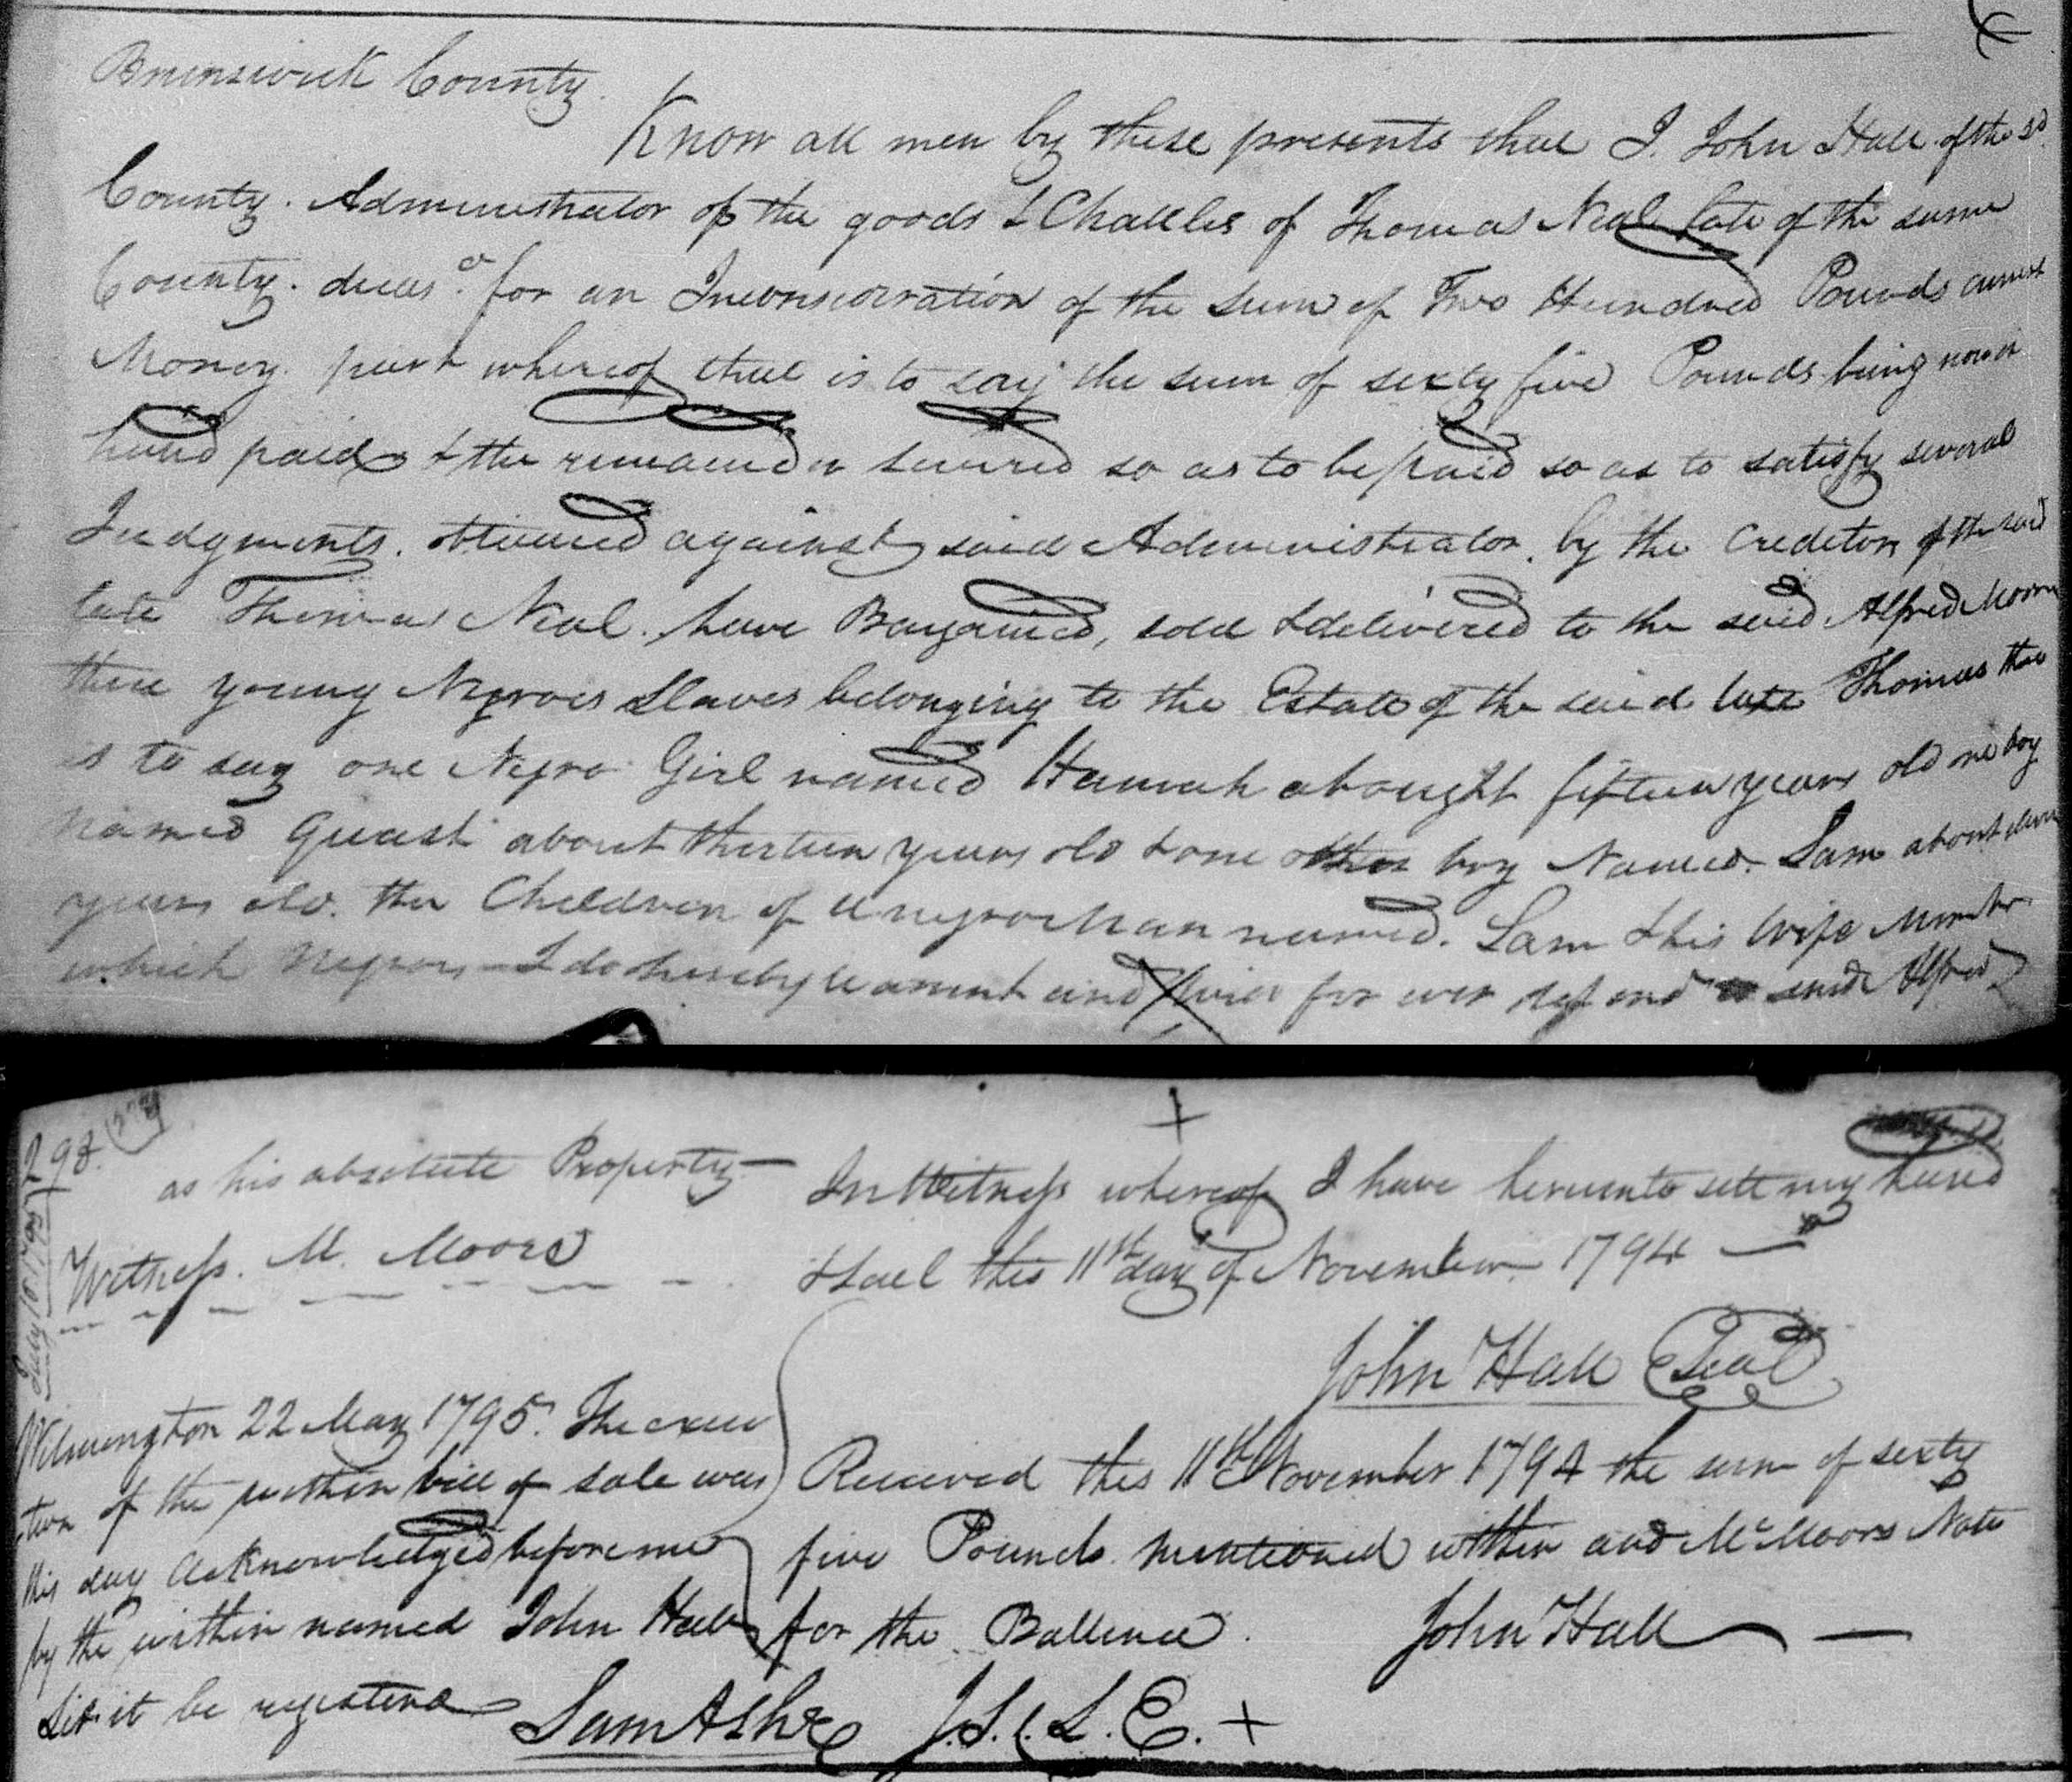 Brunswick County.
Know all men by these presents that I. John Hall of the sd
County. Administrator of the goods & Chattles of Thomas Neal late of the same
County. deceasd. for an Inconsideration of the Sum of Two Hundred Pounds current
Money. part whereof that is to say the sum of sixty five Pounds being now in
hand paid & the remainder secured so as to be paid so as to satisfy several
Judgments. obtained against said Administrator. by the Creditors of the said
late Thomas Neal. have Bargained, sold & delivered to the said Alfred Moore
three young Negroes Slaves belonging to the Estate of the said late Thomas that
is to say one Negro Girl named Hannah abought fifteen years old one boy
named Quash about thirteen years old & one other boy Named Sam about eleven
years old. the Children of a negro Man named. Sam & his Wife
which Negroes I do hereby warrant and for ever defend to said Alfred
298.
as his absolute Property—
In Witness whereof I have hereunto sett my hand
& Seal this 11st day of November 1794 —
Witness. M. Moore
John Hall Seal
July 10 1795
Wilmington 22 May 1795. The execu
-tion of the within bill of sale was
this day acknowledged before me
by the within named John Hall
Let it be registered
Received this 11th November 1794 the sum of sixty
five Pounds mentioned within and Mr Moors Note
for the Ballence.
John Hall —
Sam Ashe J.S.C.L.E. +